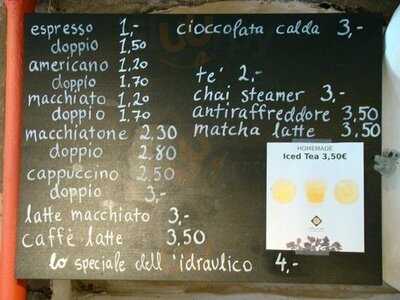 espresso 1,-
doppio 1,50
americano 1,20
doppio 1,70
macchiato 1,20
doppio 1,70
macchiatone 2,30
doppio 2,80
cappuccino 2,50
doppio 3,-
latte macchiato 3,-
caffè latte 3,50
lo speciale dell'idraulico 4,-
cioccolata calda 3,-
te' 2,-
chai steamer 3,-
antiraffreddore 3,50
matcha latte 3,50
HOMEMADE
Iced Tea 3,50€